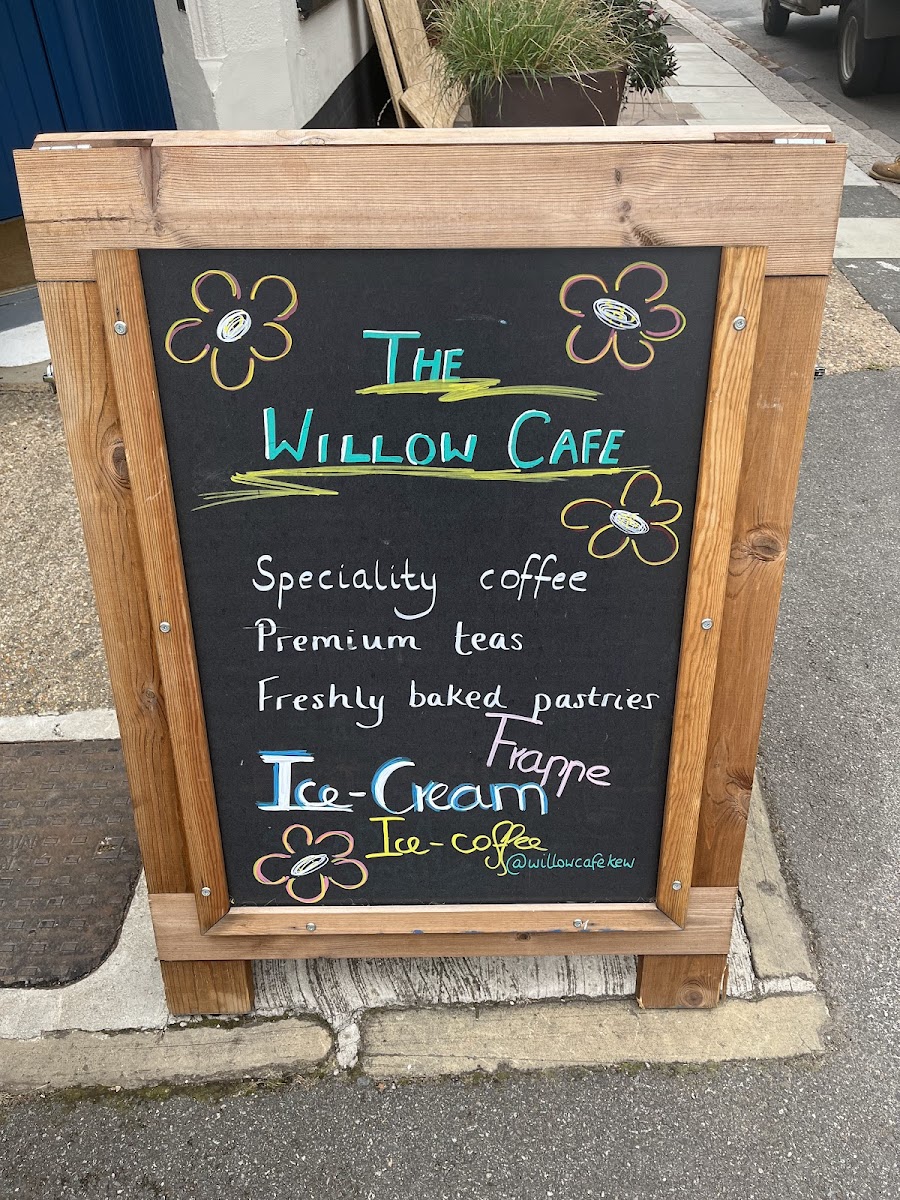 THE
WILLOW CAFE
Speciality coffee
Premium teas
Freshly baked pastries
Frappe
Ice-Cream
Ice-coffee
@willowcafekew